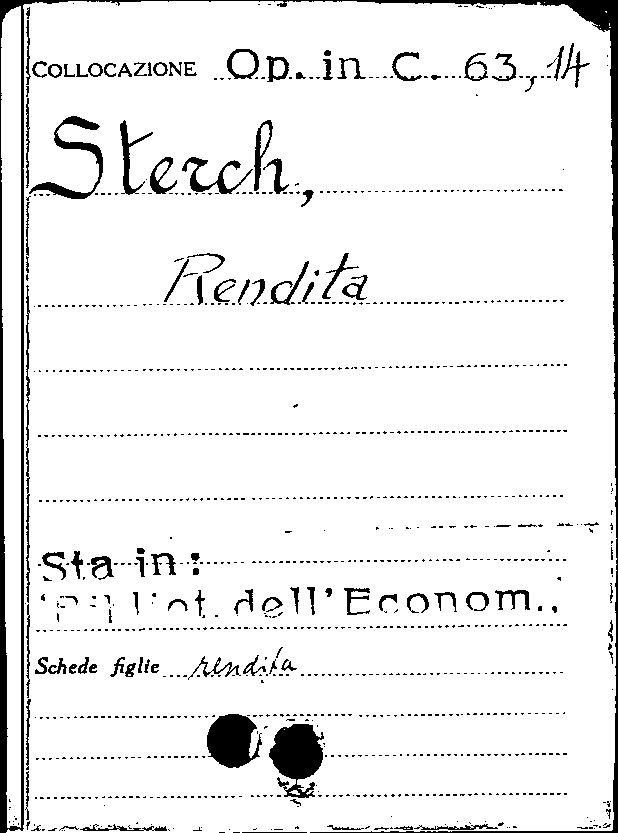 COLLOCAZIONE Op. in C. 63, 14
Sterch,
Rendita
Sta in:
"Bibliot. dell'Econom.,
Schede figlie rendita